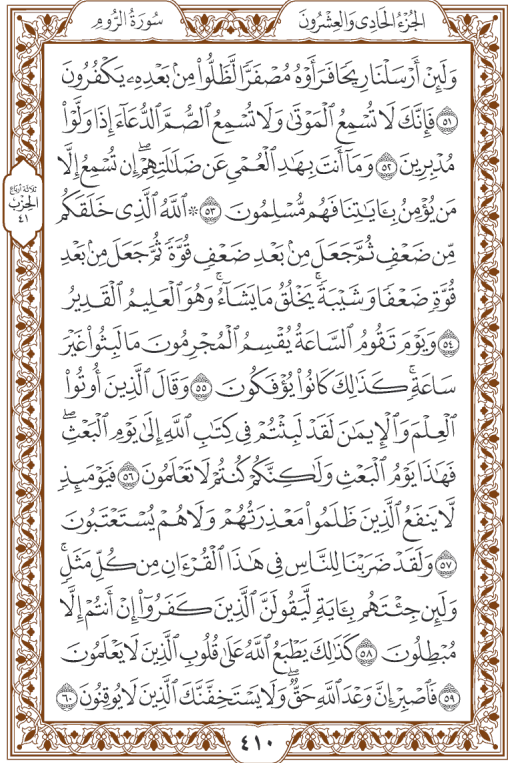 سُورَةُ الرُّومِ
الجُزْءُ الحَادِي وَالعِشْرُونَ
وَلَئِنْ أَرْسَلْنَا رِيحًا فَرَأَوْهُ مُصْفَرًّا لَّظَلُّوا۟ مِنۢ بَعْدِهِۦ يَكْفُرُونَ
٥١ فَإِنَّكَ لَا تُسْمِعُ ٱلْمَوْتَىٰ وَلَا تُسْمِعُ ٱلصُّمَّ ٱلدُّعَآءَ إِذَا وَلَّوْا۟
مُدْبِرِينَ ٥٢ وَمَآ أَنتَ بِهَٰدِ ٱلْعُمْىِ عَن ضَلَٰلَتِهِمْ ۖ إِن تُسْمِعُ إِلَّا
مَن يُؤْمِنُ بِـَٔايَٰتِنَا فَهُم مُّسْلِمُونَ ٥٣ ۞ ٱللَّهُ ٱلَّذِى خَلَقَكُم
مِّن ضَعْفٍ ثُمَّ جَعَلَ مِنۢ بَعْدِ ضَعْفٍ قُوَّةً ثُمَّ جَعَلَ مِنۢ بَعْدِ
قُوَّةٍ ضَعْفًا وَشَيْبَةً ۚ يَخْلُقُ مَا يَشَآءُ ۖ وَهُوَ ٱلْعَلِيمُ ٱلْقَدِيرُ
٥٤ وَيَوْمَ تَقُومُ ٱلسَّاعَةُ يُقْسِمُ ٱلْمُجْرِمُونَ مَا لَبِثُوا۟ غَيْرَ
سَاعَةٍ ۚ كَذَٰلِكَ كَانُوا۟ يُؤْفَكُونَ ٥٥ وَقَالَ ٱلَّذِينَ أُوتُوا۟
ٱلْعِلْمَ وَٱلْإِيمَٰنَ لَقَدْ لَبِثْتُمْ فِى كِتَٰبِ ٱللَّهِ إِلَىٰ يَوْمِ ٱلْبَعْثِ ۖ
فَهَٰذَا يَوْمُ ٱلْبَعْثِ وَلَٰكِنَّكُمْ كُنتُمْ لَا تَعْلَمُونَ ٥٦ فَيَوْمَئِذٍ
لَّا يَنفَعُ ٱلَّذِينَ ظَلَمُوا۟ مَعْذِرَتُهُمْ وَلَا هُمْ يُسْتَعْتَبُونَ
٥٧ وَلَقَدْ ضَرَبْنَا لِلنَّاسِ فِى هَٰذَا ٱلْقُرْءَانِ مِن كُلِّ مَثَلٍ ۚ
وَلَئِن جِئْتَهُم بِـَٔايَةٍ لَّيَقُولَنَّ ٱلَّذِينَ كَفَرُوٓا۟ إِنْ أَنتُمْ إِلَّا
مُبْطِلُونَ ٥٨ كَذَٰلِكَ يَطْبَعُ ٱللَّهُ عَلَىٰ قُلُوبِ ٱلَّذِينَ لَا يَعْلَمُونَ
٥٩ فَٱصْبِرْ إِنَّ وَعْدَ ٱللَّهِ حَقٌّ ۖ وَلَا يَسْتَخِفَّنَّكَ ٱلَّذِينَ لَا يُوقِنُونَ ٦٠
ثلاثة أرباع
الحزب
٤١
٤١٠